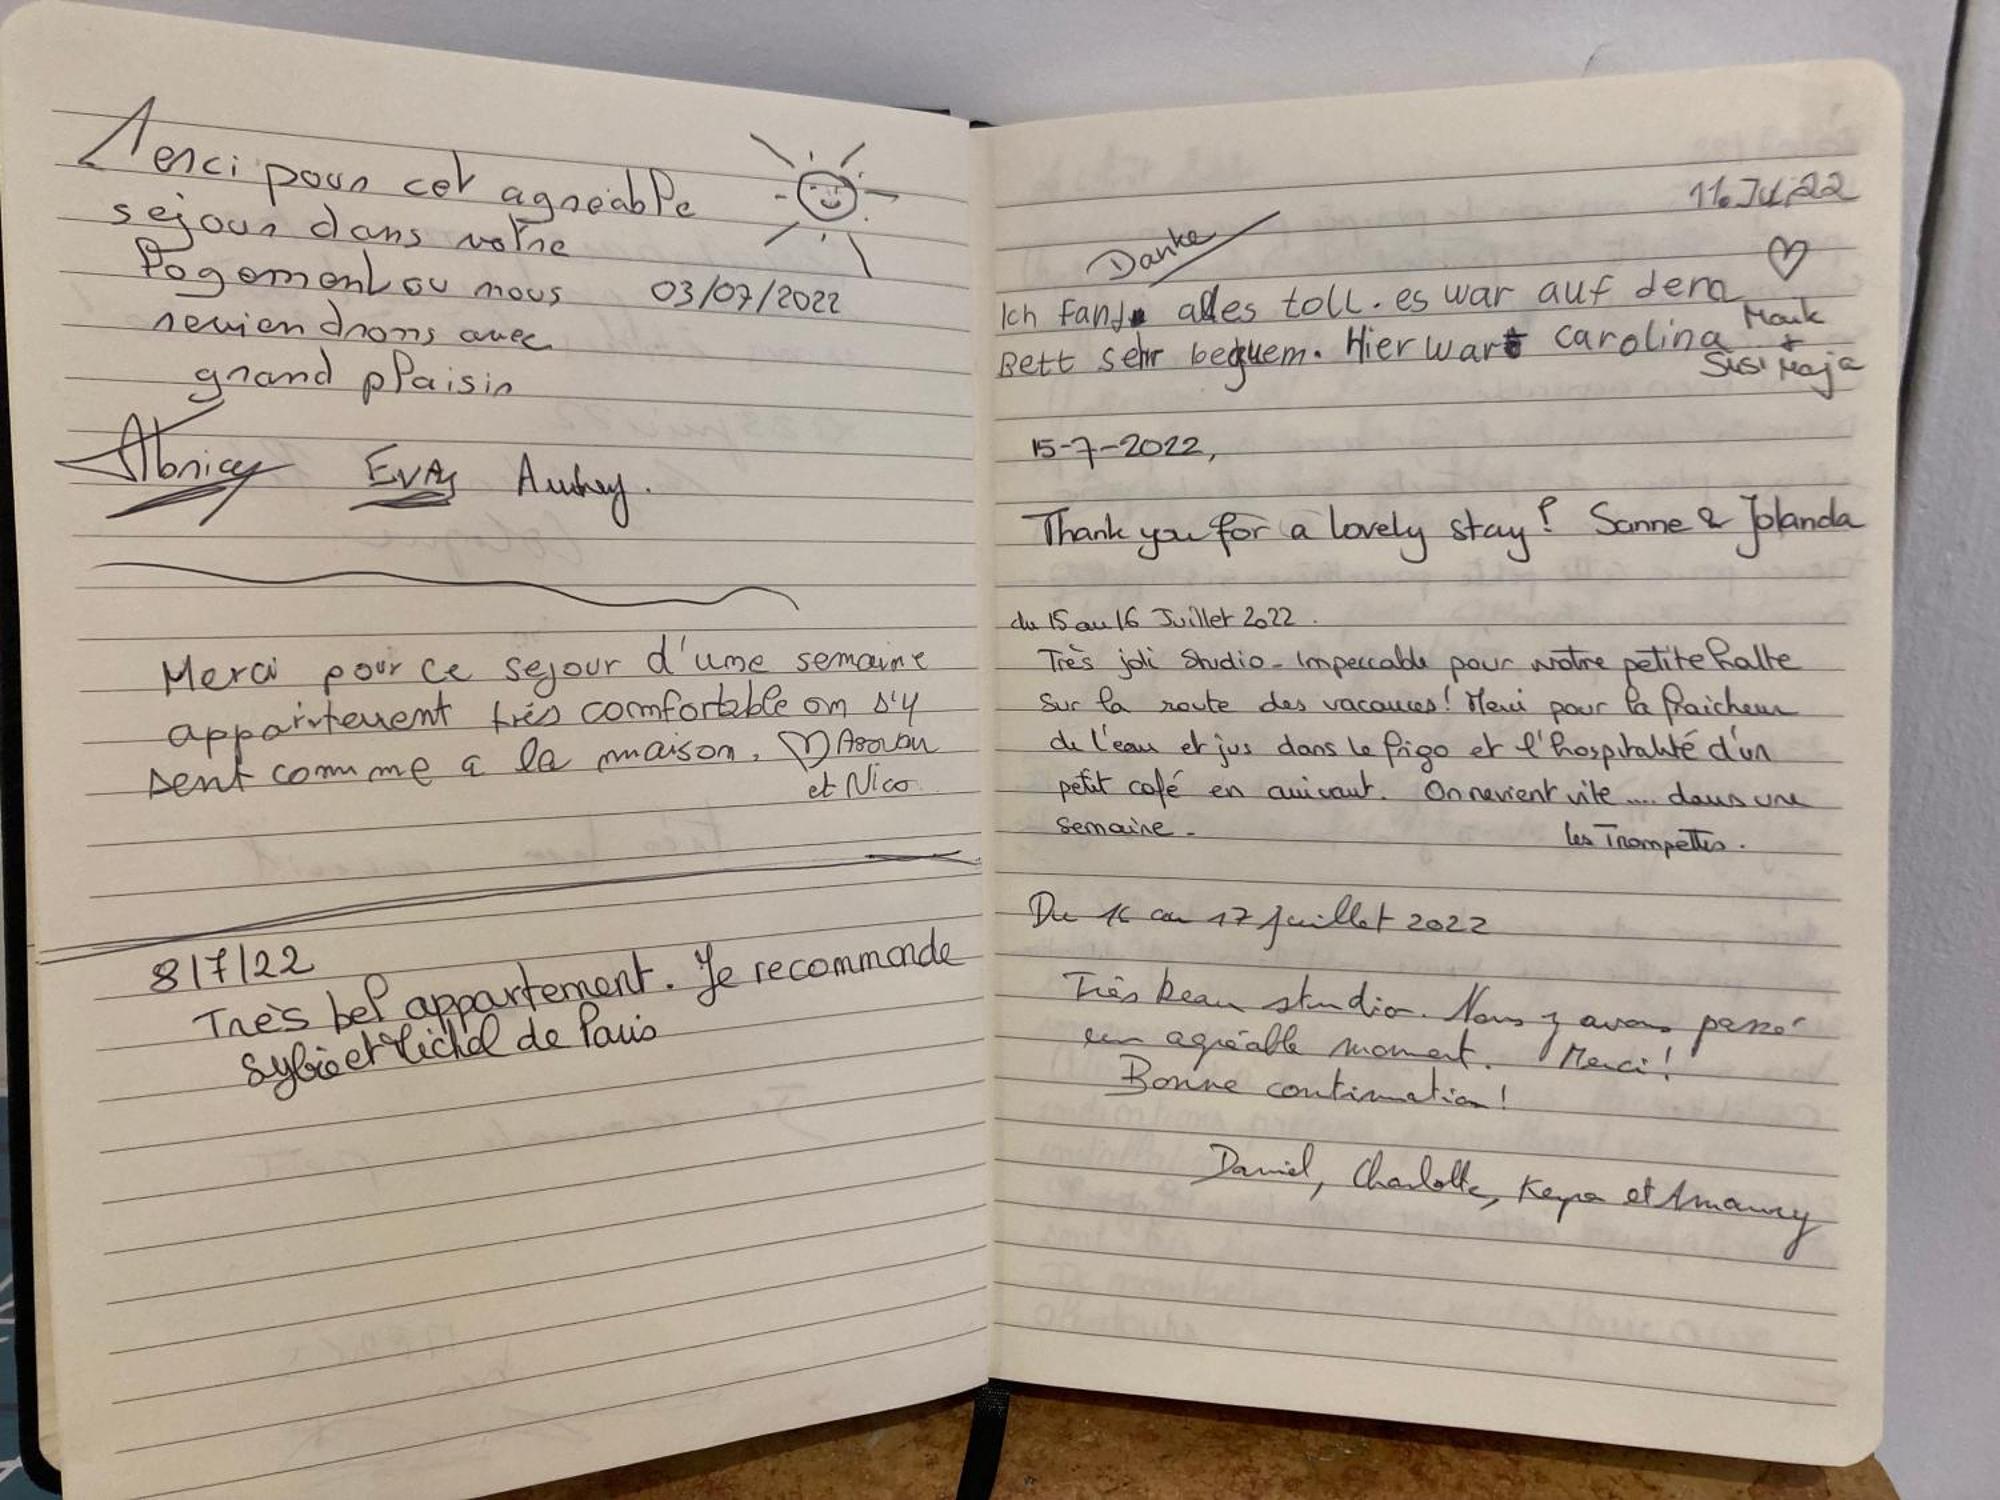 Merci pour cet agréable
sejour dans votre
logement ou nous
03/07/2022
reviendrons avec
grand plaisir
EVA Audrey.
Merci pour ce sejour d'une semaine
appartement très comfortable on s'y
sent comme a la maison. ♡
et Nico
8/7/22
Très bel appartement. Je recommande
Sylvie et Michel de Paris
11. Jul 22
Danke
Ich fand alles toll. es war auf dem
Bett sehr bequem. Hier war Carolina
♡
Maik
+
Susi Maja
15-7-2022,
Thank you for a lovely stay! Sanne & Jolanda
du 15 au 16 Juillet 2022.
Très joli Studio - Impeccable pour notre petite halte
sur la route des vacances! Merci pour la fraicheur
de l'eau et jus dans le frigo et l'hospitalité d'un
petit café en arrivant. On revient vite .... dans une
semaine -
les Trompettes.
Du 16 au 17 juillet 2022
Très beau studio. Nous y avons passé
un agréable moment. Merci!
Bonne continuation!
Daniel, Charlotte, et Amaury